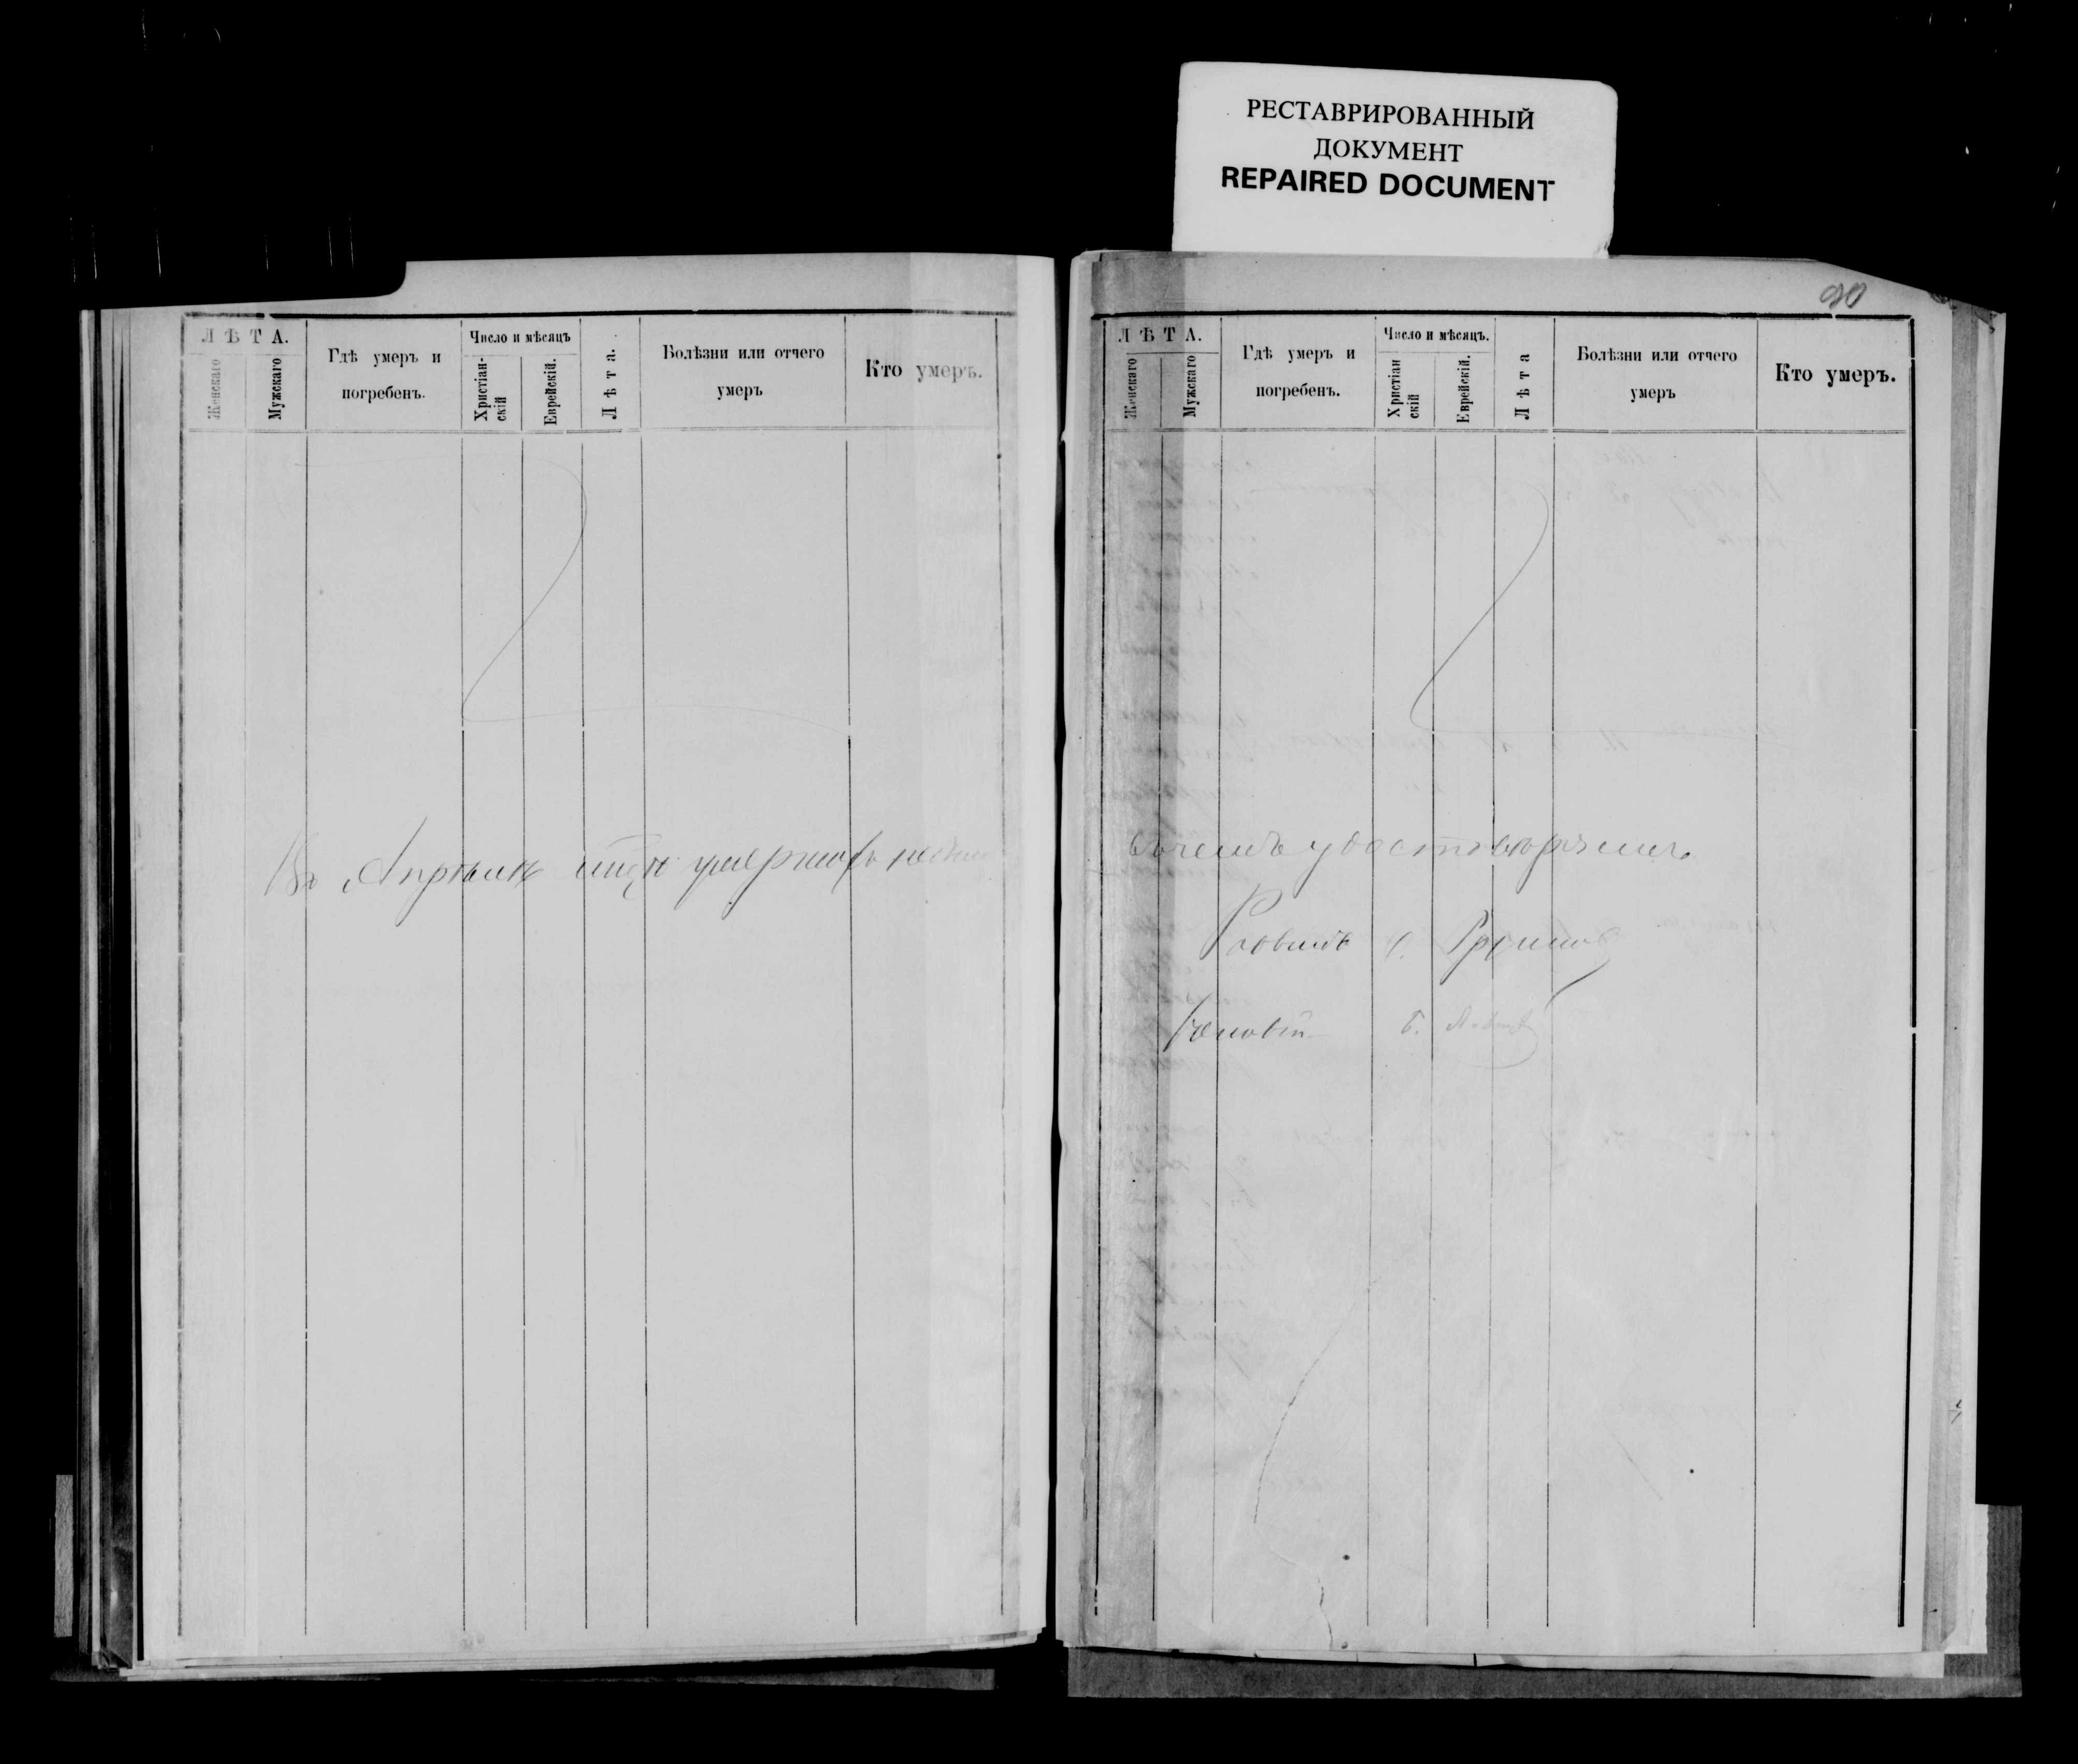 РЕСТАВРИРОВАННЫЙ
ДОКУМЕНТ
REPAIRED DOCUMENT
90
Л Ѣ Т А.
Женскаго
Мужскаго
Гдѣ умеръ и
погребенъ.
Число и мѣсяцъ
Христіан-
скій
Еврейскій.
Лѣта.
Болѣзни или отчего
умеръ
Кто умеръ.
Въ Апрѣлѣ умершихъ
Л Ѣ Т А.
Женскаго
Мужскаго
Гдѣ умеръ и
погребенъ.
Число и мѣсяцъ.
Христіан
скій
Еврейскій.
Лѣта
Болѣзни или отчего
умеръ
Кто умеръ.
въ чемъ удостовѣряемъ